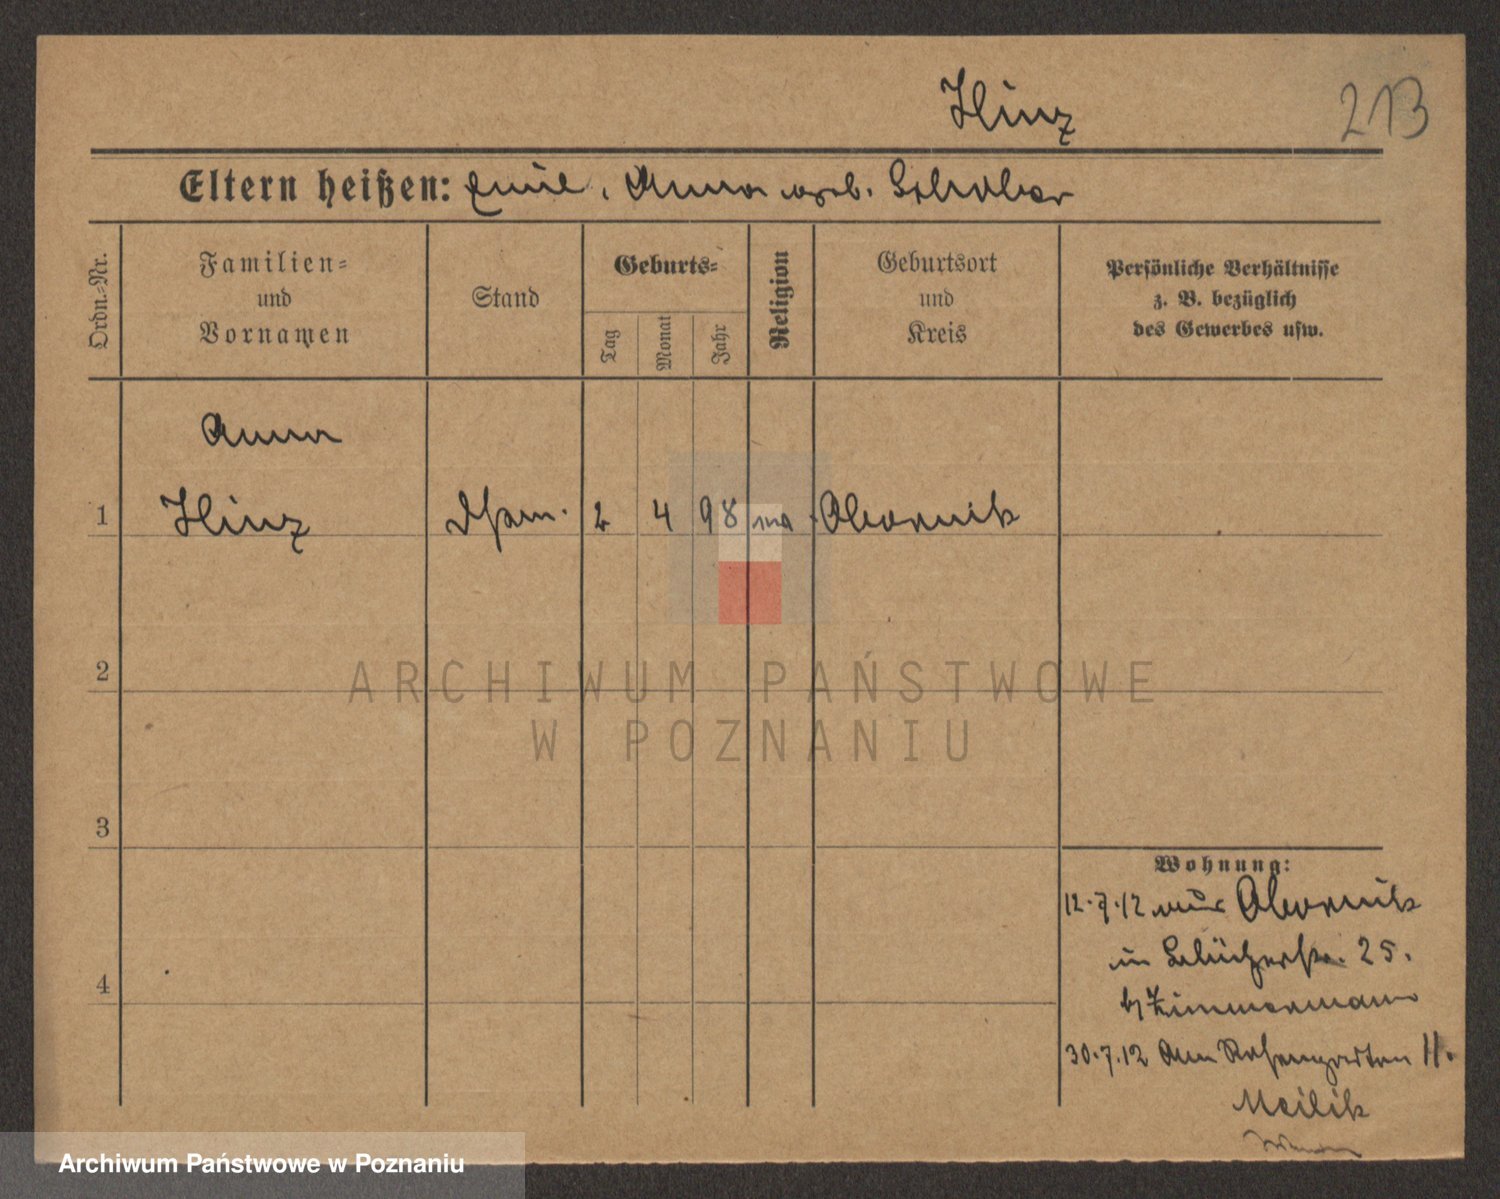 Hinz
213
Eltern heißen: Emil, Anna geb. Schober
Ordn.-Nr.
Familien-
und
Vornamen
Stand
Geburts-
Tag
Monat
Jahr
Religion
Geburtsort
und
Kreis
Persönliche Verhältnisse
z. B. bezüglich
des Gewerbes usw.
Anna
1 Hinz 2 4 98 Obornik
2
3
4
ARCHIWUM PAŃSTWOWE
W POZNANIU
Wohnung:
12.7.12 aus Obornik
in 25.
b/ Zimmermann
30.7.12 Am Rosengarten 11.
Meilik
Archiwum Państwowe w Poznaniu